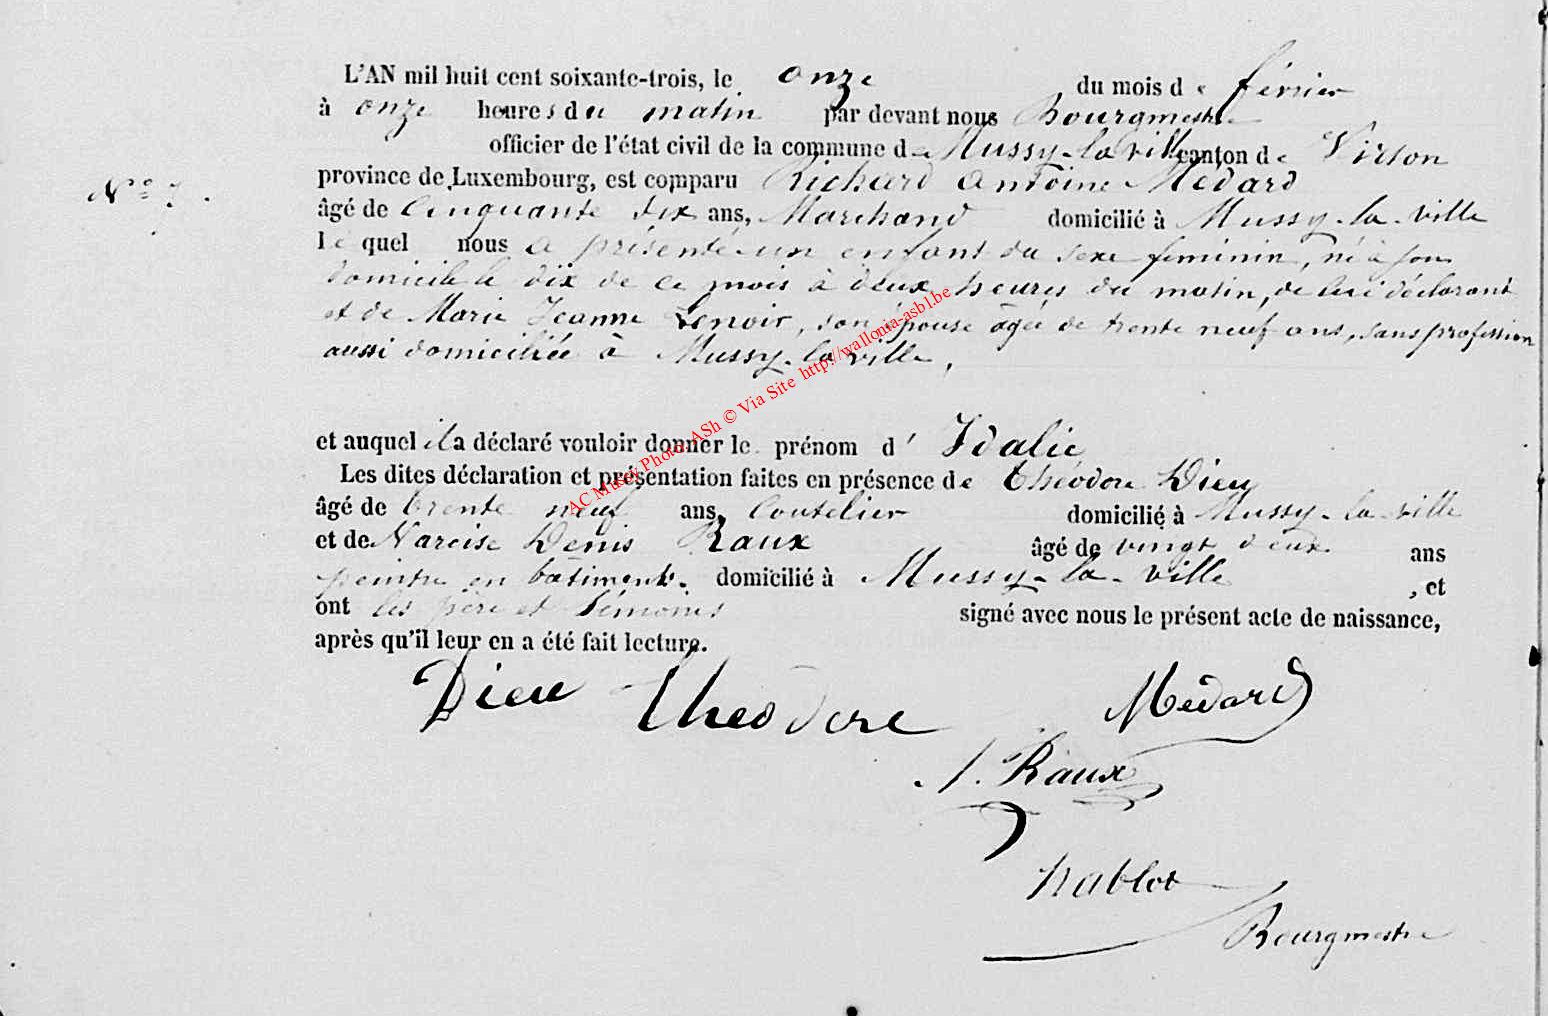 L'AN mil huit cent soixante-trois, le onze du mois de février
à onze heures du matin par devant nous Bourgmestre
officier de l'état civil de la commune de Mussy-la-ville canton de Virton
province de Luxembourg, est comparu Richard Antoine Médard
N° 7.
âgé de cinquante dix ans, Marchand domicilié à Mussy-la-ville
lequel nous a présenté un enfant du sexe féminin, né à son
domicile le dix de ce mois à deux heures du matin, de lui déclarant
et de Marie Jeanne Lenoir, son épouse âgée de trente neuf ans, sans profession
aussi domiciliée à Mussy-la ville,
et auquel il a déclaré vouloir donner le prénom d' Idalie
Les dites déclaration et présentation faites en présence de Théodore Dieu
âgé de trente neuf ans, Coutelier domicilié à Mussy-la-ville
et de Narcise Denis Raux âgé de vingt deux ans
peintre en batiments. domicilié à Mussy-la-ville , et
ont les père et témoins signé avec nous le présent acte de naissance,
après qu'il leur en a été fait lecture.
Dieu Théodore Médard
Raux
Nablot
Bourgmestre
AC Mussy Photo ASh © Via Site http://wallonia-asbl.be